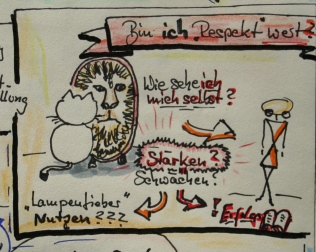 Bin ich „Respekt“ wert?
Wie sehe ich
mich selbst?
Stärken?
Schwächen?
„Lampenfieber“
Nutzen???
! Erfolge